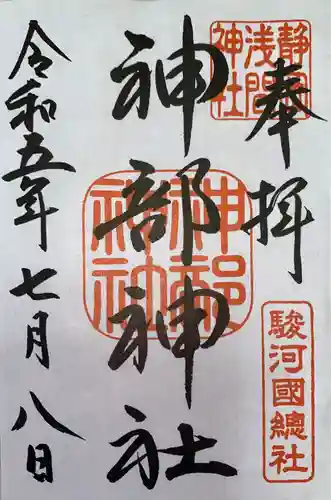 奉拝
静岡浅間神社
駿河國總社
神部神社
神部神社
令和五年七月八日